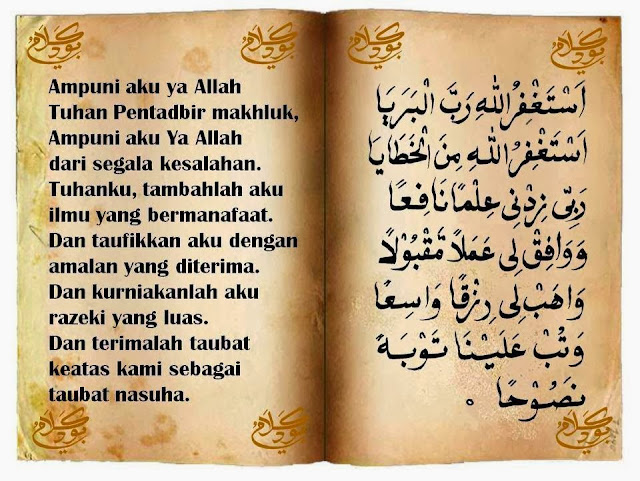 Ampuni aku ya Allah
Tuhan Pentadbir makhluk,
Ampuni aku Ya Allah
dari segala kesalahan.
Tuhanku, tambahlah aku
ilmu yang bermanafaat.
Dan taufikkan aku dengan
amalan yang diterima.
Dan kurniakanlah aku
razeki yang luas.
Dan terimalah taubat
keatas kami sebagai
taubat nasuha.
اَسْتَغْفِرُ اللهِ رَبَّ الْبَرَيَا
اَسْتَغْفِرُ اللهِ مِنَ الْخَطَايَا
رَبِّى زِدْنِى عِلْمًا نَافِعًا
وَوَافِقْ لِى عَمَلًا مَقْبُوْلًا
وَاهَبْ لِى رِزْقًا وَاسِعًا
وَتُبْ عَلَيْنَا تَوْبَةً
نَصُوْحًا